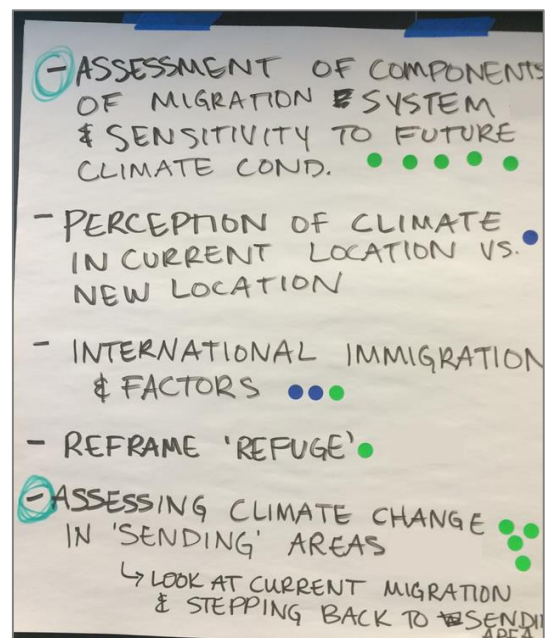 - ASSESSMENT OF COMPONENTS
OF MIGRATION SYSTEM
& SENSITIVITY TO FUTURE
CLIMATE COND.
- PERCEPTION OF CLIMATE
IN CURRENT LOCATION VS.
NEW LOCATION
- INTERNATIONAL IMMIGRATION
& FACTORS
- REFRAME 'REFUGE'
- ASSESSING CLIMATE CHANGE
IN 'SENDING' AREAS
↳ LOOK AT CURRENT MIGRATION
& STEPPING BACK TO SENDI
AREA